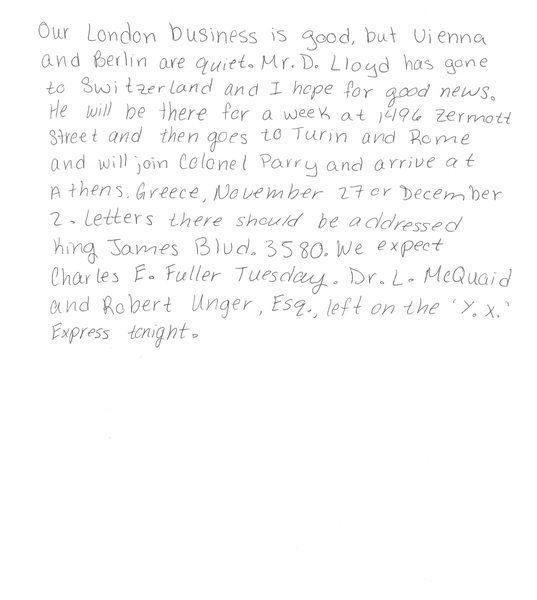 Our London business is good, but Vienna
and Berlin are quiet. Mr. D. Lloyd has gone
to Switzerland and I hope for good news.
He will be there for a week at 1496 Zermott
Street and then goes to Turin and Rome
and will join Colonel Parry and arrive at
Athens. Greece, November 27 or December
2. Letters there should be addressed
King James Blvd. 3580. We expect
Charles E. Fuller Tuesday. Dr. L. McQuaid
and Robert Unger, Esq., left on the 'Y. X.'
Express tonight.